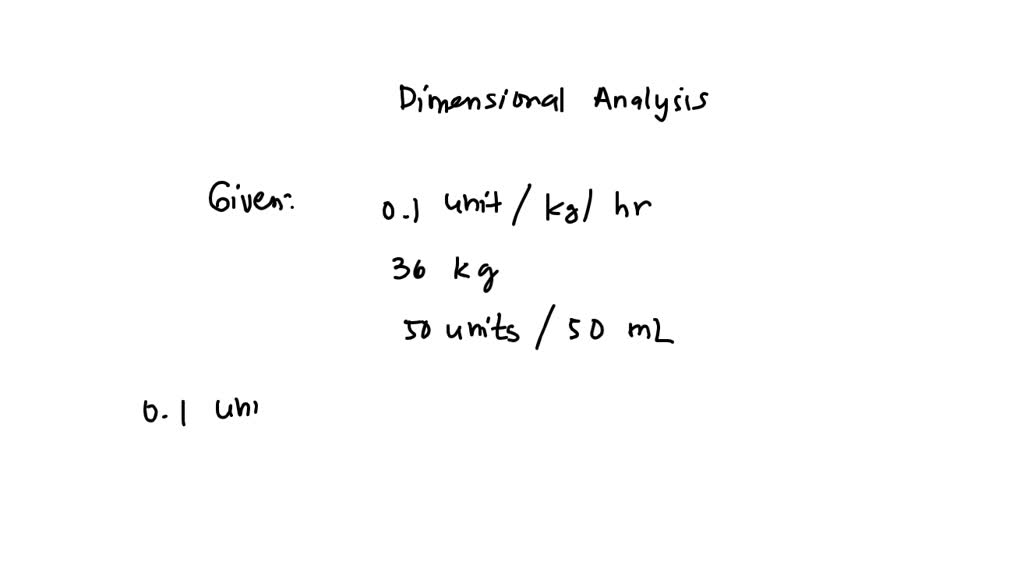 Dimensional Analysis
Given: 0.1 unit / kg / hr
36 kg
50 units / 50 mL
0.1 uni